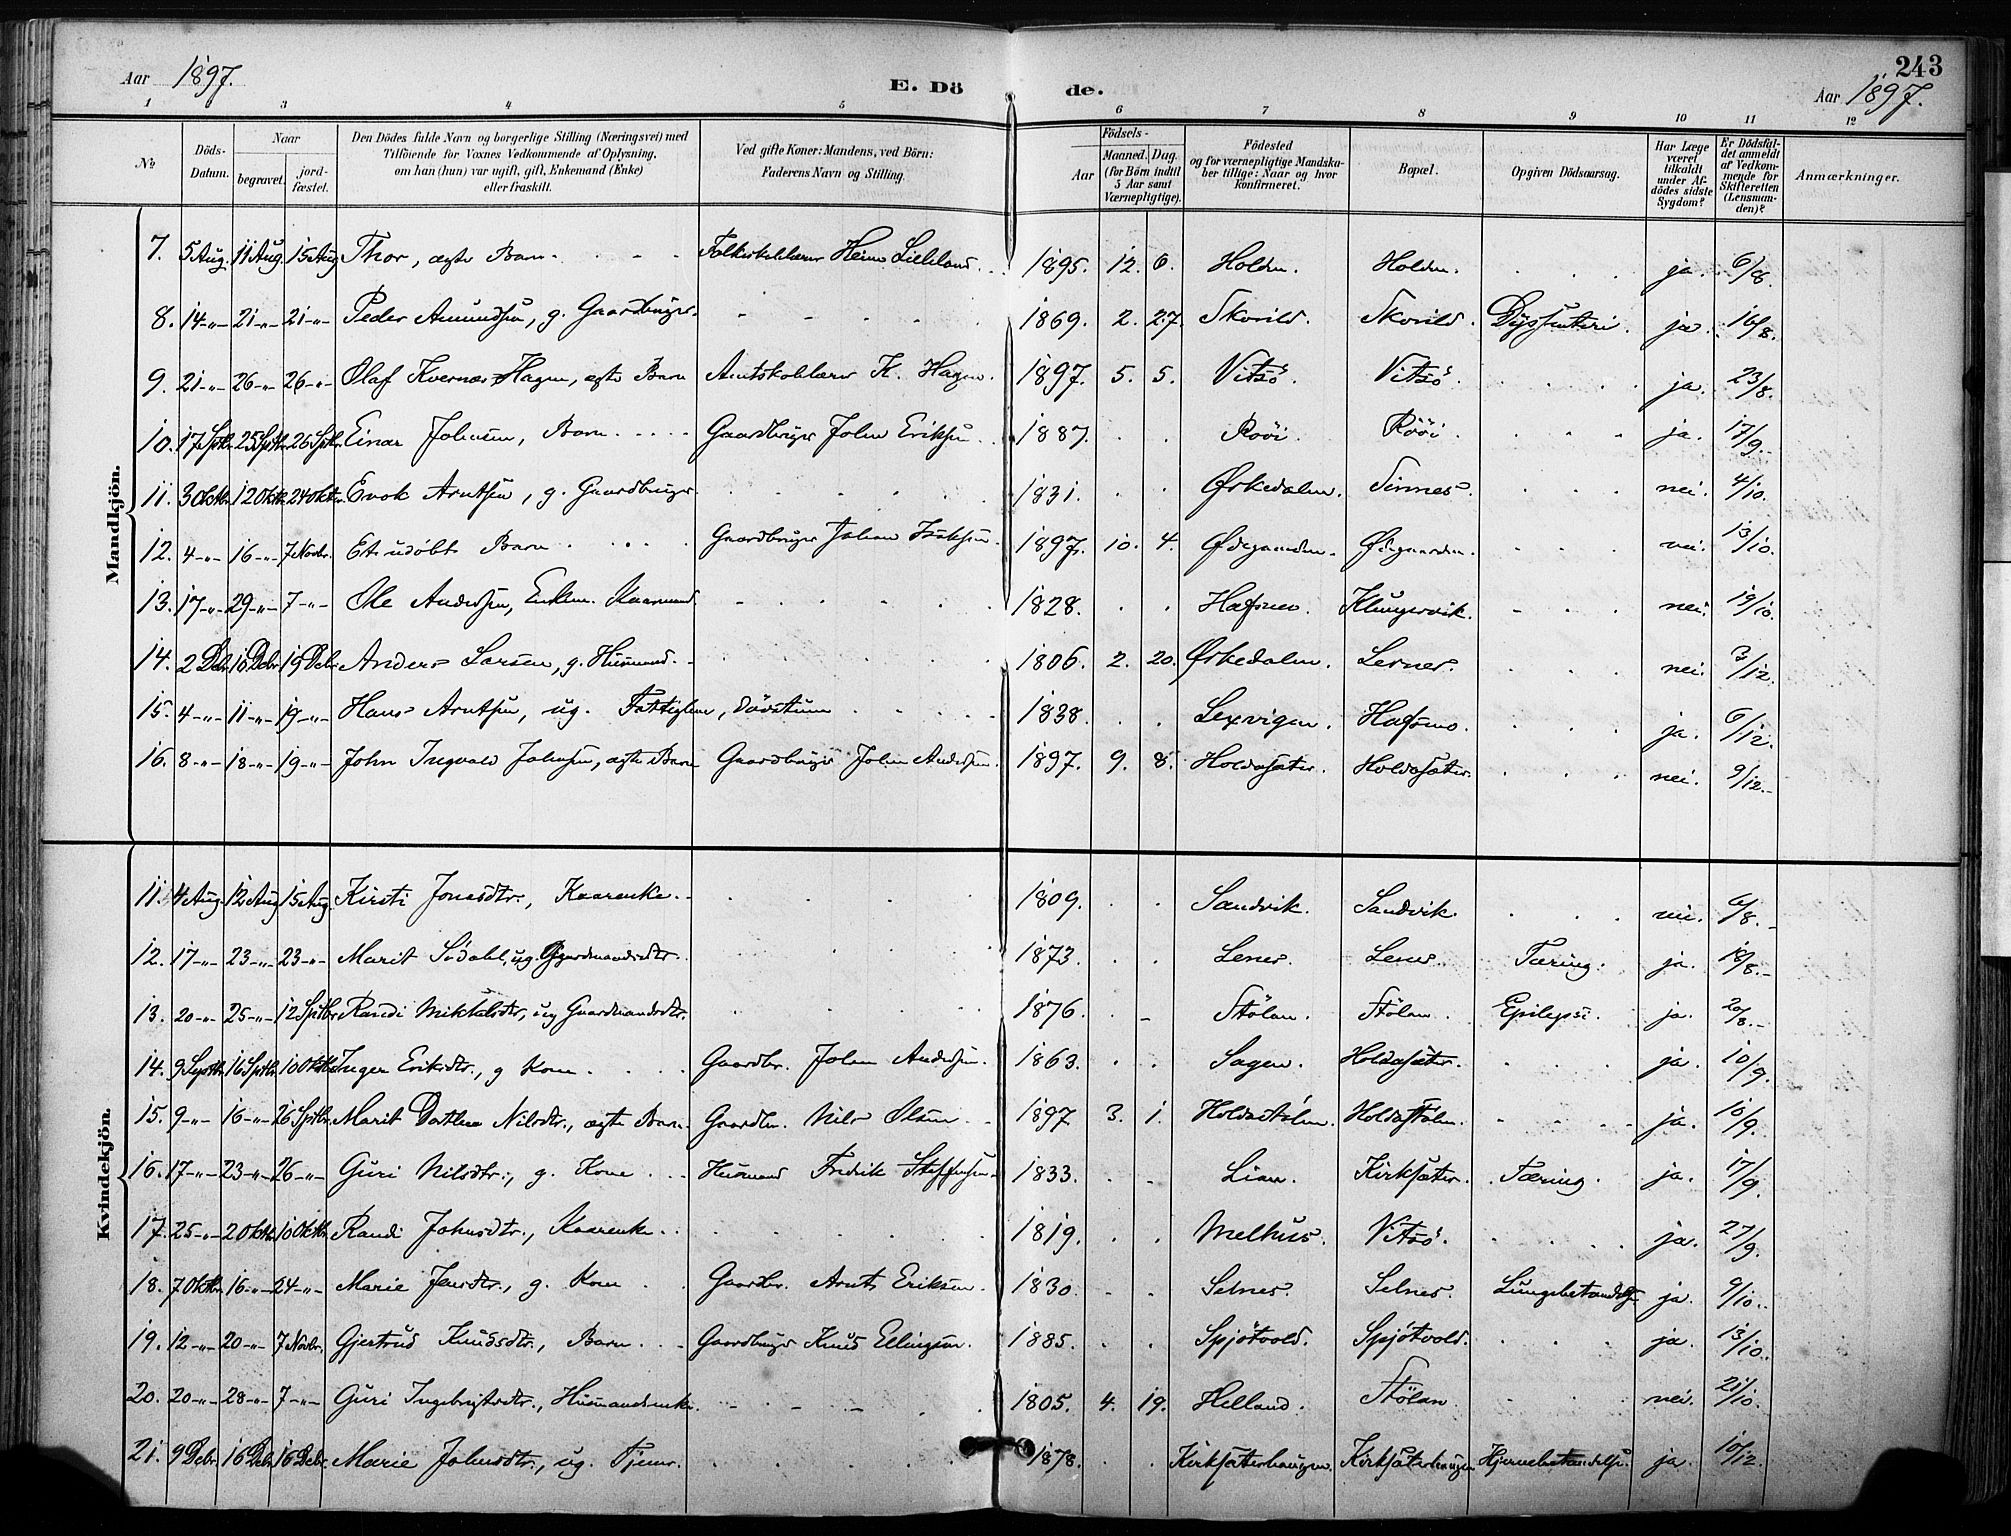 243
Aar 1897. E. Dö de. Aar 1897.
1 3 4 5 6 7 8 9 10 11 12
№ Döds-Datum. Naar begravet. jordfæstet. Den Dödes fulde Navn og borgerlige Stilling (Næringsvei) med Tilföiende for Voxnes Vedkommende af Oplysning, om han (hun) var ugift, gift, Enkemand (Enke) eller fraskilt. Ved gifte Koner: Mandens, ved Börn: Faderens Navn og Stilling. Födsels- Aar Maaned. Dag. (for Börn indtil 5 Aar samt Værnepligtige). Födested og for værnepligtige Mandskaber tillige: Naar og hvor konfirmeret. Bopæl. Opgiven Dödsaarsag. Har Læge været tilkaldt under Afdödes sidste Sygdom? Er Dödsfaldet anmeldt af Vedkommende for Skifteretten (Lensmanden)? Anmærkninger.
Mandkjön.
7. 5 Aug. 11 Aug. 15 Aug. Thor, ægte Barn. Folkeskolelærer Heim Lilleland 1895. 12. 6. Holden. Holden. ja. 6/8.
8. 14-"- 21-"- 21-"- Peder Amundsen, g. Gaardbruger. 1869. 2. 27. Skorild. Skorild. Dyssenteri. ja. 16/8.
9. 21-"- 26-"- 26-"- Olaf Kvernæs Hagen, ægte Barn Amtskolelærer K. Hagen. 1897. 5. 5. Vitsö. Vitsö. ja. 23/8.
10. 17 Sptbr. 25 Sptbr. 26 Sptbr. Einar Johnsen, Barn Gaardbruger John Eriksen 1887. Rööi. Rööi. ja. 17/9.
11. 3 Oktbr. 12 Oktbr. 24 Oktbr. Enok Arntsen, g. Gaardbruger 1831. Ørkedalen. Sinnes. nei. 4/10.
12. 4-"- 16-"- 7 Novbr. Et udøbt Barn Gaardbruger Johan Isaksen. 1897. 10. 4. Ødegaarden. Ødegaarden. nei. 13/10.
13. 17-"- 29-"- 7-"- Ole Andersen, Enkem. Kaarmand. 1828. Hafsmo. Klungervik. nei. 19/10.
14. 2 Debr. 10 Debr. 19 Debr. Anders Larsen, g. Husmand. 1806. 2. 20. Ørkedalen. Lernes. nei. 3/12.
15. 4-"- 11-"- 19-"- Hans Arntsen, ug. Fattiglem, døvstum 1838. Lexvigen. Hafsmo. ja. 6/12.
16. 8-"- 18-"- 19-"- John Ingvald Johnsen, ægte Barn Gaardbruger John Andersen. 1897. 9. 8. Holdasæter. Holdasæter. nei. 9/12.
Kvindekjön.
11. 4 Aug. 12 Aug. 15 Aug. Kirsti Jonasdtr., Kaarenke. 1809. Sandvik. Sandvik. nei. 6/8.
12. 17-"- 23-"- 23-"- Marit Södahl, ug. Gaardmandsdtr. 1873. Lenes. Lenes. Tæring. ja. 18/8.
13. 20-"- 25-"- 12 Sptbr. Randi Mikkalsdtr., ug Gaardmandsdtr. 1876. Stölan. Stölan. Epilepsi. ja. 20/8.
14. 9 Septbr. 16 Sptbr. 10 Oktbr. Inger Eriksdtr., g Kone Gaardbr. John Andersen. 1863. Sagen. Holdasæter. ja. 10/9.
15. 9-"- 16-"- 26 Sptbr. Marit Dorthea Nilsdtr., ægte Barn. Gaardbr. Nils Olsen 1897 3. 1. Holdastölen. Holdastölen. ja. 10/9.
16. 17-"- 23-"- 26-"- Guri Nilsdtr., g. Kone Husmand Fredrik Steffensen 1833. Lian. Kirksæter. Tæring. ja. 17/9.
17. 25-"- 2 Oktbr. 10 Oktbr. Randi Johnsdtr., Kaarenke 1819. Melhus. Vitsö. ja. 27/9.
18. 7 Oktbr. 16-"- 24-"- Marie Jensdtr., g. Kone Gaardbr. Arnt Eriksen. 1830. Selnes. Selnes. Lungebetændelse ja. 9/10.
19. 12-"- 20-"- 7 Novbr. Gjertrud Knudsdtr., Barn Gaardbruger Knud Ellingsen. 1885. Spjötvold. Spjötvold. ja. 13/10.
20. 20-"- 28-"- 7-"- Guri Ingebrigtsdtr., Husmandsenke 1805. 4. 19. Helland. Stölan nei. 21/10.
21. 9 Debr. 16 Debr. 16 Debr. Marie Johnsdtr., ug. Tjener. 1878. Kirksæterhaugen. Kirksæterhaugen Hjernebetændelse. ja. 10/12.